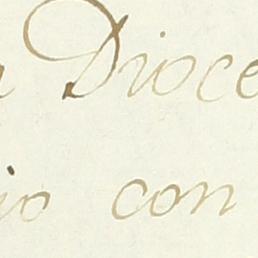 a Dioce
io con